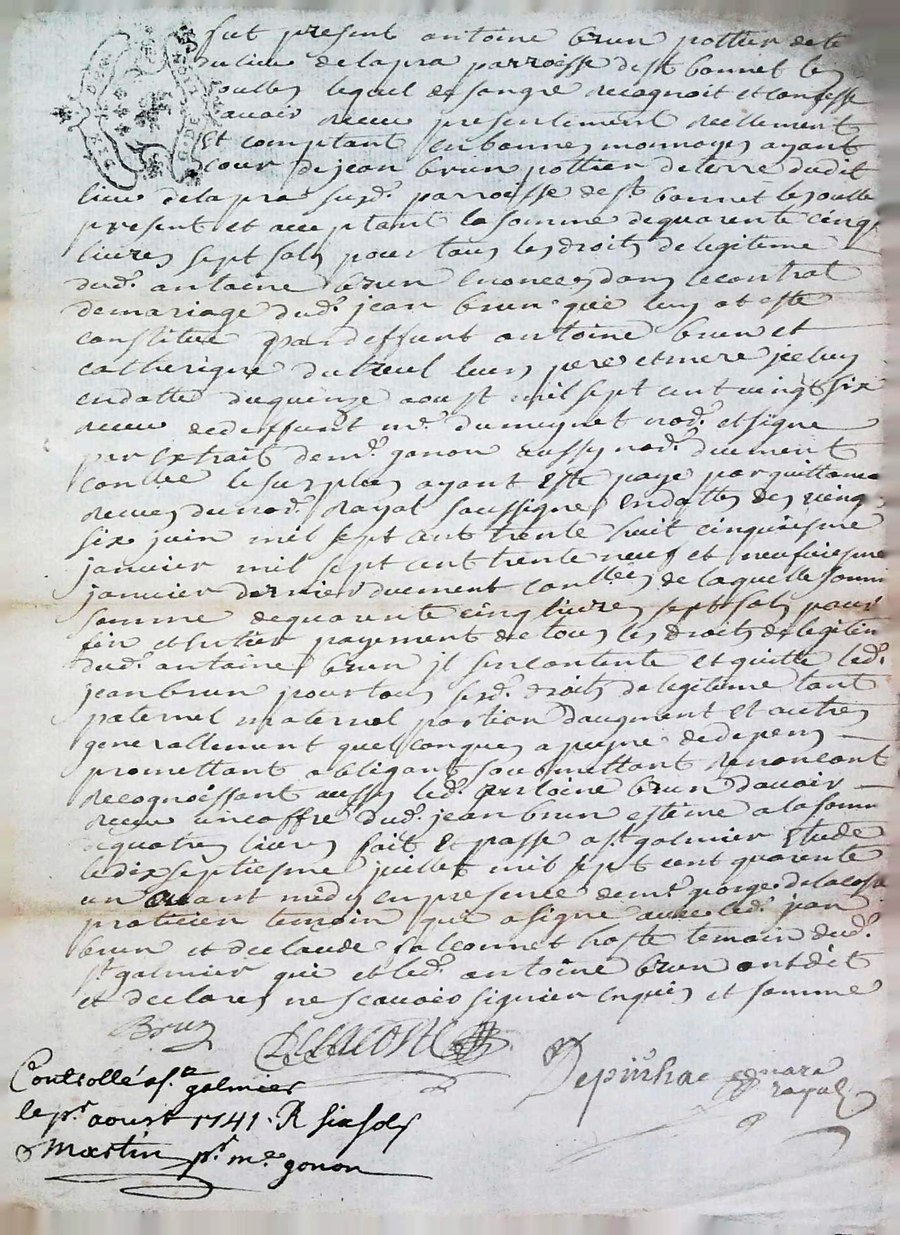 fut present antoine brun pottier de te
du lieu de la pra parroesse de st bonnet les
oulles lequel de son gre recognoit et confesse
avoir receu presentement reellement
et comptant en bonnes monnoyes ayant
cour de jean brun pottier de terre dudit
lieu de la pra susd. parroesse de st bonnet les oulle
present et acceptant la somme de quarente cinq
livres sept sols pour tous les droits de legiteme
dud. antoine brun enonces dans le contrat
de mariage dud. jean brun que luy at este
constitue par deffunt antoine brun et
catherigne dutreul leurs pere et mere jceluy
en datte du quinze aoust mil sept cent vingt six
receu de deffunt me. dumeynet nore. et signe
per extrait de me. gonon aussy nore. duement
conlle le surplus ayant este paye par quittance
receues du nore. royal soussigne en dattes des vingt
six juin mil sept cent trente huit cinquiesme
janvier mil sept cent trente neuf et neufviesme
janvier dernier duement conllees de laquelle somm
somme de quarente cinq livres sept sols pour
fin et entier payement de tous les droits de legitim
dud. antoine brun jl sen contente et quitte led.
jean brun pour tous sesd. droits de legiteme tant
paternel maternel portion daugment et autres
generallement quelconques a peyne de depens
promettant obligant soubmettant renoncant
recognoissant aussy led. antoine brun davoir
receu un coffre dud. jean brun esteme a la somm
de quatre livres fait et passe a st galmier etude
le dix septiesme juillet mil sept cent quarente
un avant midy en presence de me george delacosta
praticien temoin qui a signe avec led. jean
brun et de claude falconnet hoste temoin dud.
st galmier qui et led. antoine brun ont dit
et declares ne scavoir signier enquis et somme
Brun
DELACOSTE
Depinhac
royal
Controllé a st. galmier
le pr. aoust 1741. R six sols
Martin pr. me. gonon